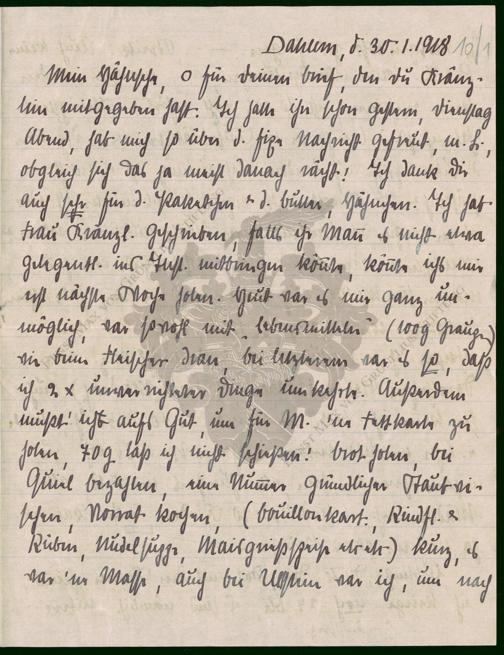 Dahlem, d. 30.1.1918 10/1
Mein Hähnsche, o für deinen brief, den du Kränz-
lin mitgegeben hast. Ich hatte ihn schon gestern, dienstag
Abend, hab mich so über d. fixe Nachricht gefreut, m. H.,
obgleich sich das ja meist danach rächt! Ich dank dir
auch sehr für d. Paketchen & d. butter, Hähnchen. Ich hab
Frau Kränzl. geschrieben, falls ihr Mann es nicht etwa
gelegentl. ins Inst. mitbringen könnte, könnte ichs mir
erst nächste Woche holen. Heut war es mir ganz un-
möglich, war sowohl mit "lebensmitteln" (100g Graupen)
wie beim Fleischer dran, bei letzterem war es so, daß
ich 2 x unverrichteter dinge umkehrte. Außerdem
mußt' ich aufs Gut, um für M. 'ne Fettkarte zu
holen, 70g laß ich nicht schießen! brot holen, bei
bezahlen, eine Nummer gründlicher Staub wi-
schen, Vorrat kochen, (bouillonkart., Rindfl. &
Rüben, Nudelsuppe, Maisgriesspeise etc etc) kurz, es
war 'ne Masse, auch bei Ullstein war ich, um nach